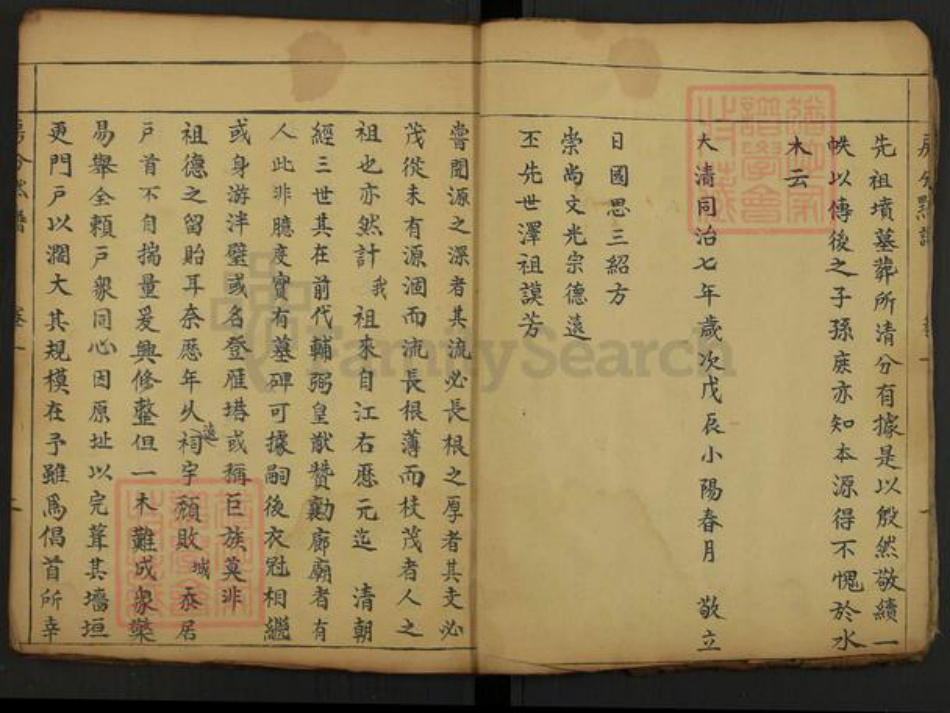 先祖墳墓葬所清分有據是以殷然敬續一
帙以傳後之子孫庶亦知本源得不愧於水
木云
大清同治七年歲次戊辰小陽春月 敬立
日國思三紹方
崇尚文光宗德遠
丕先世澤祖謨芳
嘗聞源之深者其流必長根之厚者其支必
茂從未有源涸而流長根薄而枝茂者人之
祖也亦然計我祖來自江右歷元迄 清朝
經三世其在前代輔弼皇猷贊勷廊廟者有
人此非臆度實有墓碑可據嗣後衣冠相繼
或身游泮壁或名登雁塔或稱巨族莫非
祖德之留貽耳奈歷年久遠祠宇頹敗城忝居
戶首不自揣量爰興修整但一木難成眾櫱
易舉全賴戶眾同心因原址以完葺其墻垣
更門戶以濶大其規模在予雖為倡首所幸
FamilySearch